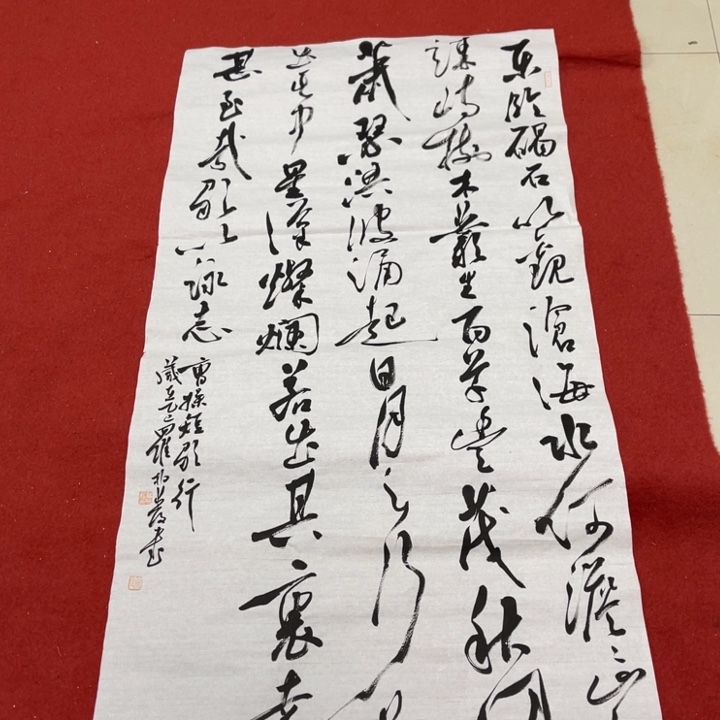 東臨碣石以觀滄海水何澹〻山
竦峙樹木叢生百草豐茂秋風
蕭瑟洪波涌起日月之行若
出其中星漢燦爛若出其裏幸
甚至哉歌以詠志
曹操短歌行
歲乙巳羅書